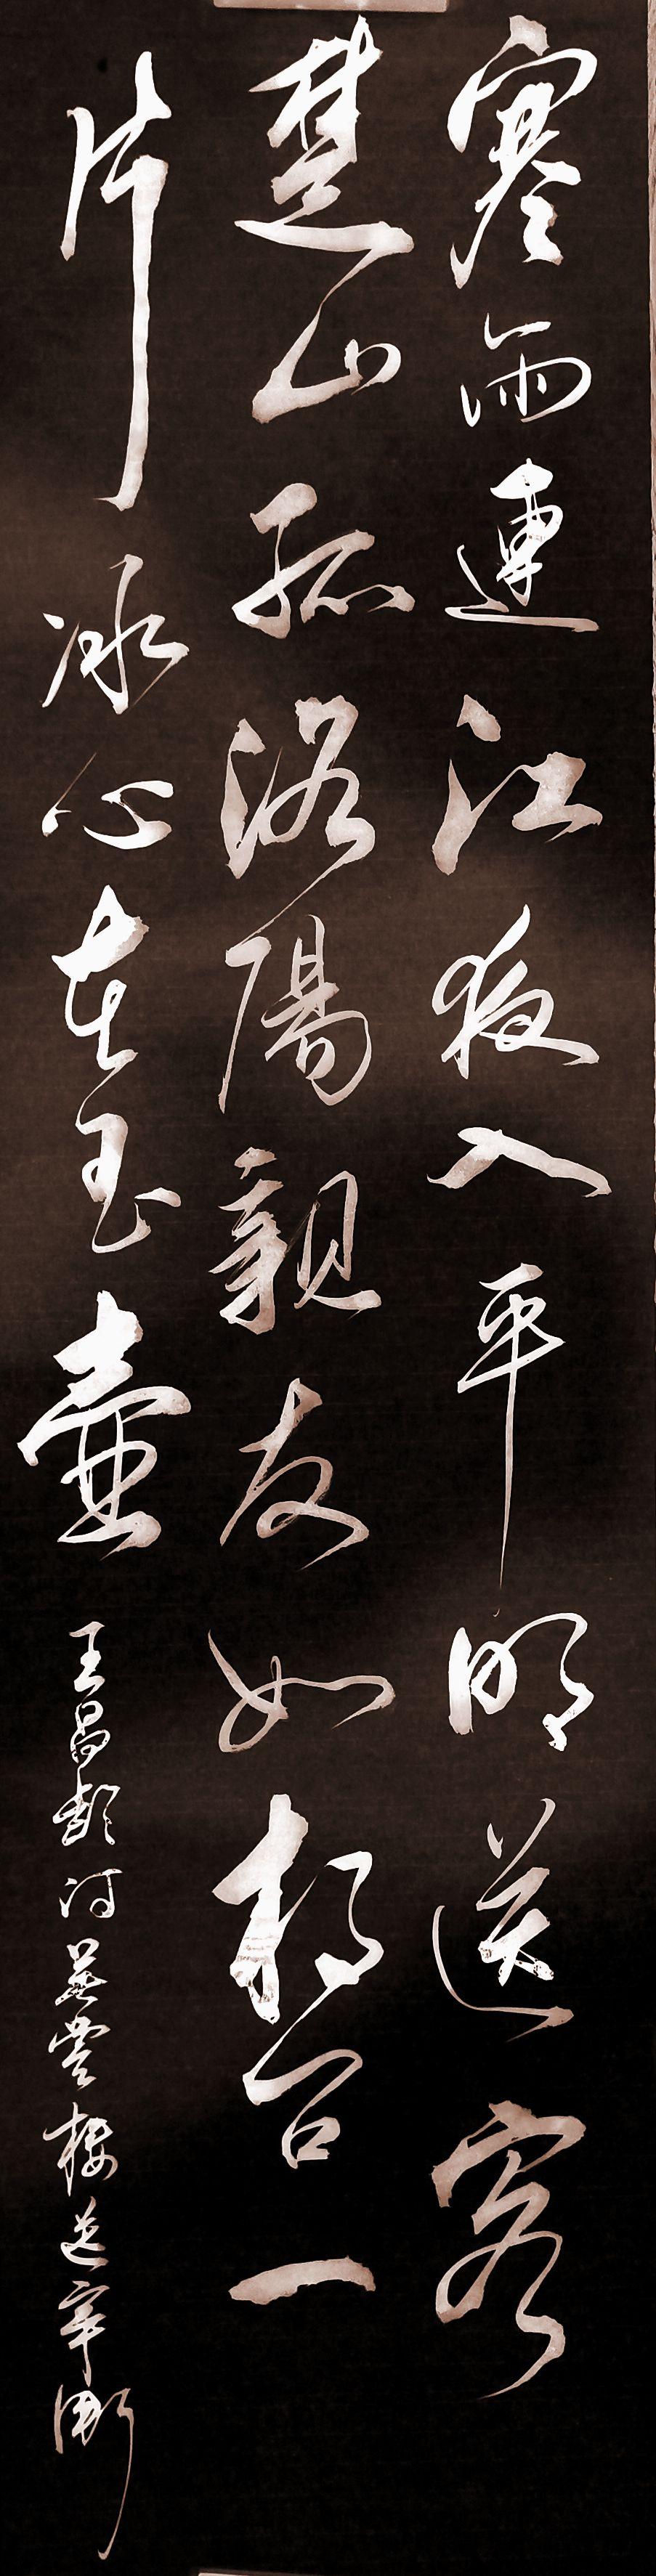 寒雨連江夜入平明送客
楚山孤洛陽親友如相問一
片冰心在玉壺
王昌齡詩芙蓉樓送辛漸